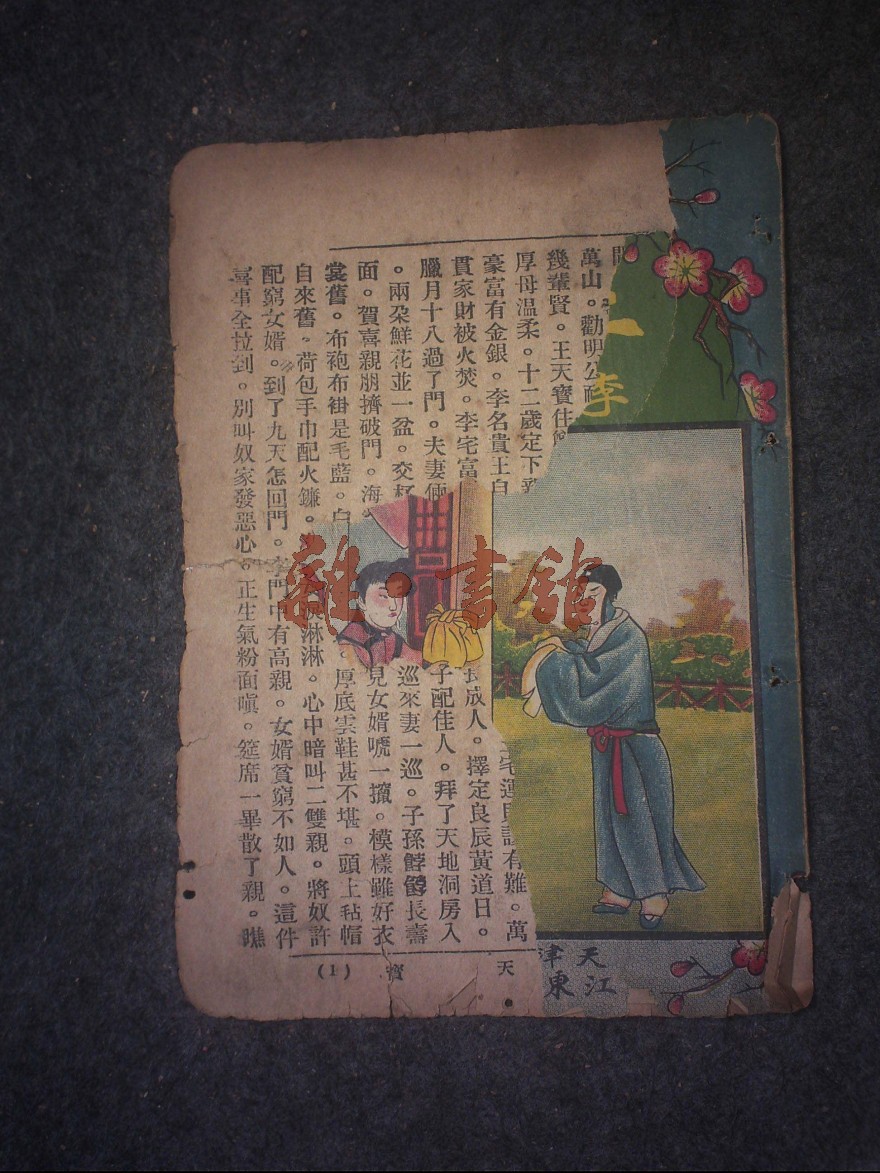 二
李
天津
江東
萬山。勸明公
幾輩賢。王天寶住
厚母温柔。十二歲定下
豪富有金銀。李名貴王白 宅運 有難。萬
貫家財被火焚。李宅富 長成人。擇定良辰黃道日。
臘月十八過了門。夫妻倆 子配佳人。拜了天地洞房入
。兩朶鮮花並一盆。交杯 巡來妻一巡。子孫餑餑長壽
面。賀喜親朋擠破門。海 見女婿唬一 。模樣雖好衣
裳舊。布袍布褂是毛藍。白 厚底雲鞋甚不堪。頭上毡帽
自來舊。荷包手巾配火鐮。 淚淋淋。心中暗叫二雙親。將奴許
配窮女婿。到了九天怎回門。李門中有高親。女婿貧窮不如人。這件
喜事全拉到。別叫奴家發惡心。正生氣粉面嗔。筵席一畢散了親。瞧
天 寶 (1)
雜·書館